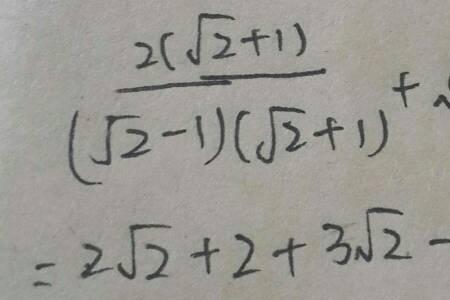 2(√2+1)
(√2-1)(√2+1) +
= 2√2 + 2 + 3√2 -